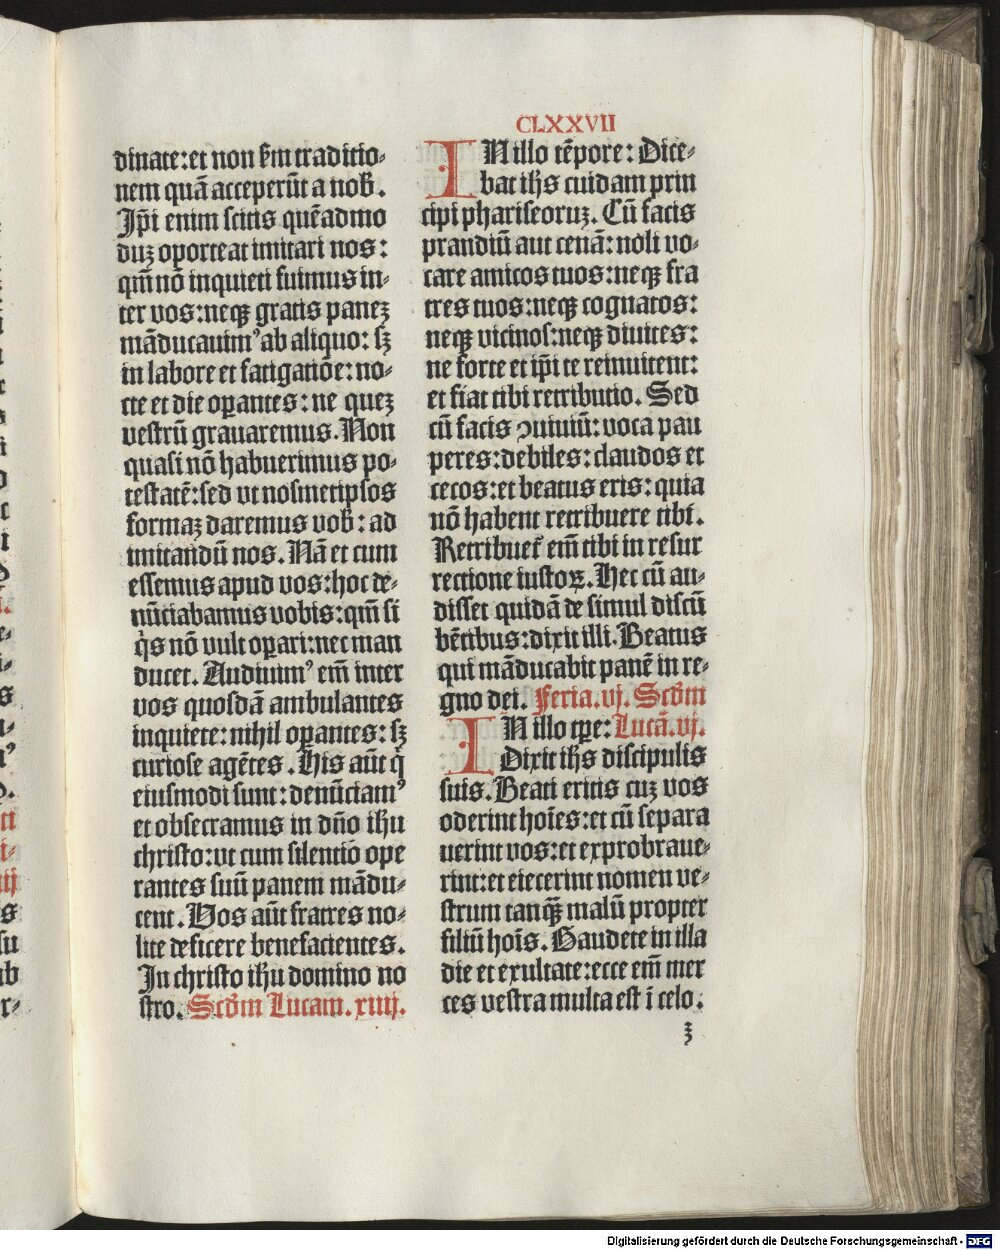 CLXXVII
dinate: et non ẜm traditio-
nem quā acceperūt a nob̄.
Ip̄i enim scitis quēadmo
duꝫ oporteat imitari nos:
qm̄ nō inquieti fuimus in-
ter vos: neqꝫ gratis panez
māducauim⁹ ab aliquo: sꝫ
in labore et fatigatiōe: no-
cte et die oꝑantes: ne quez
vestrū grauaremus. Non
quasi nō habuerimus po-
testatē: sed vt nosmetipsos
formaꝫ daremus vob̄: ad
imitandū nos. Nā et cum
essemus apud vos: hoc de-
nūciabamus vobis: qm̄ si
qͥs nō vult oꝑari: nec man
ducet. Audiuim⁹ em̄ inter
vos quosdā ambulantes
inquiete: nihil oꝑantes: sꝫ
curiose agētes. His aūt qͥ
eiusmodi sunt: denūciam⁹
et obsecramus in dn̄o ih̄u
christo: vt cum silentio ope
rantes suū panem mādu-
cent. Uos aūt fratres no-
lite deficere benefacientes.
In christo ih̄u domino no
stro. Scd̄m Lucam. xiiij.
IN illo tēpore: Dice-
bat ih̄s cuidam prin
cipi phariseoruꝫ. Cū facis
prandiū aut cenā: noli vo-
care amicos tuos: neqꝫ fra
tres tuos: neqꝫ cognatos:
neqꝫ vicinos: neqꝫ diuites:
ne forte et ip̄i te reinuitent:
et fiat tibi retributio. Sed
cū facis ꝯuiuiū: voca pau
peres: debiles: claudos et
cecos: et beatus eris: quia
nō habent retribuere tibi.
Retribuet̄ em̄ tibi in resur
rectione iustoꝝ. Hec cū au-
disset quidā de simul discū
bētibus: dixit illi. Beatus
qui māducabit panē in re-
gno dei. Feria. vj. Scd̄m
IN illo tꝑe: Lucā. vj.
Dixit ih̄s discipulis
suis. Beati eritis cuꝫ vos
oderint hoīes: et cū separa
uerint vos: et exprobraue-
rint: et eiecerint nomen ve-
strum tanqꝫ̄ malū propter
filiū hoīs. Gaudete in illa
die et exultate: ecce em̄ mer
ces vestra multa est ī celo.
ꝫ
Digitalisierung gefördert durch die Deutsche Forschungsgemeinschaft - DFG